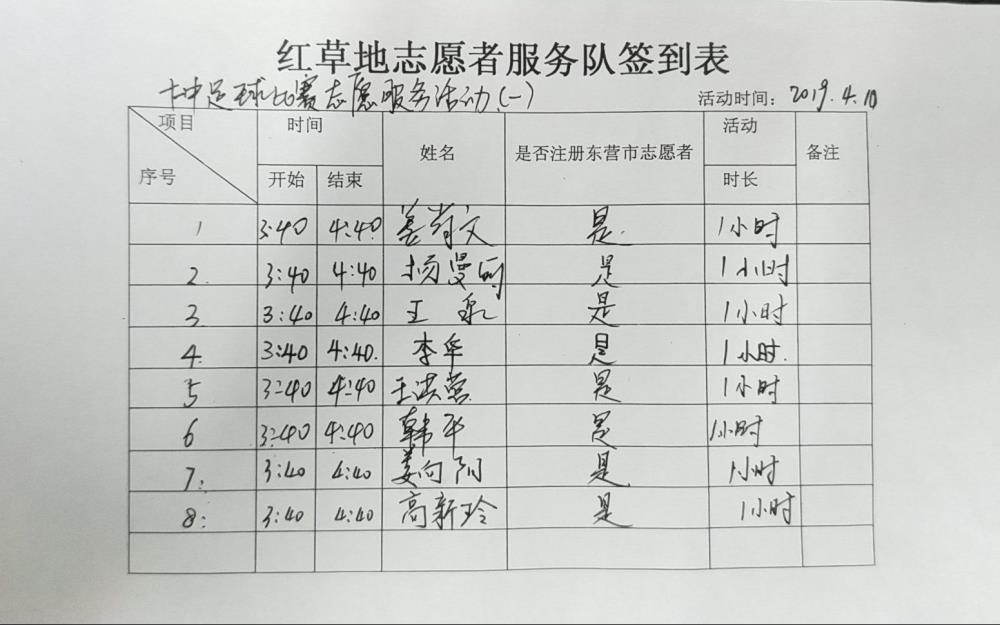 红草地志愿者服务队签到表
足球比赛志愿服务活动(一)
活动时间：2019.4.10
项目 时间 姓名 是否注册东营市志愿者 活动 备注
序号 开始 结束 时长
1 3:40 4:40 姜尚文 是 1小时
2. 3:40 4:40 杨曼 是 1小时
3. 3:40 4:40 王 是 1小时
4. 3:40 4:40. 李军 是 1小时.
5 3:40 4:40 王洪营 是 1小时
6 3:40 4:40 韩平 是 1小时
7. 3:40 4:40 姜向阳 是 1小时
8. 3:40 4:40 高新玲 是 1小时